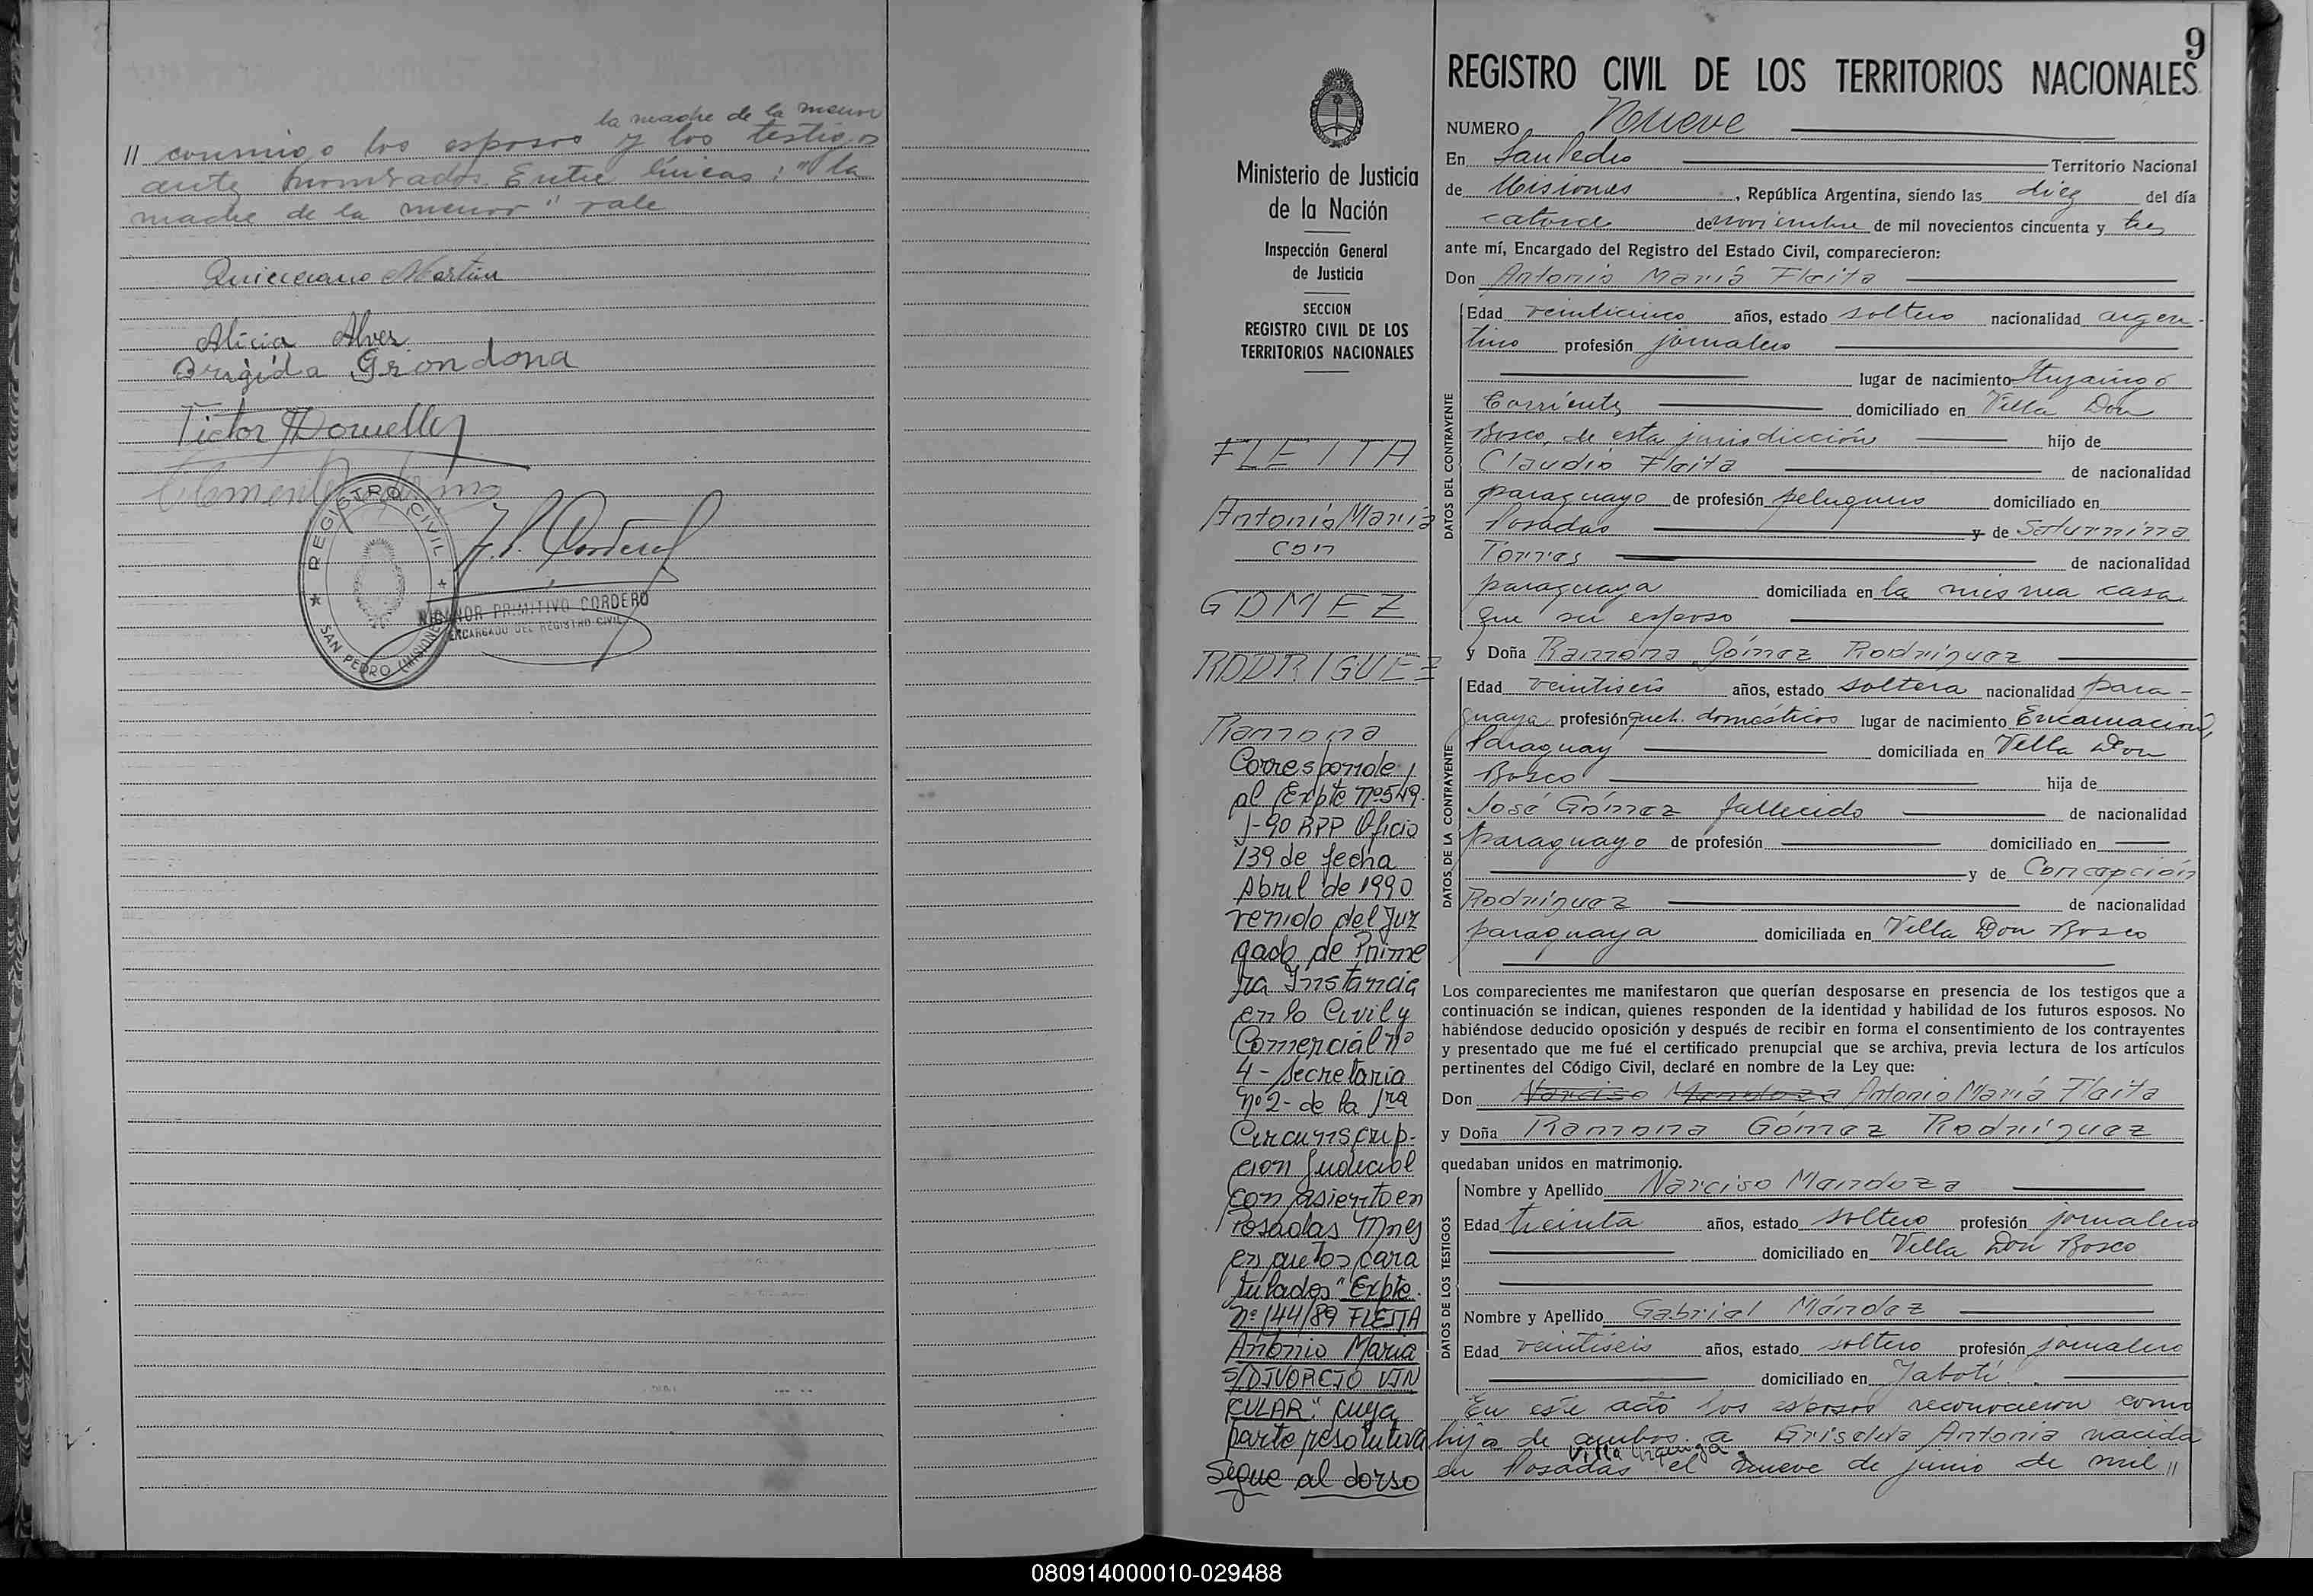 la madre de la menor
// conmigo los esposos y los testigos
antes nombrados. Entre líneas: "la
madre de la menor" vale
Quirciano Martin
Alicia Alvez
Brigida Grondona
Victor
Clemente
REGISTRO CIVIL
SAN PEDRO (MISIONES)
NICANOR PRIMITIVO CORDERO
ENCARGADO DEL REGISTRO CIVIL
Ministerio de Justicia
de la Nación
Inspección General
de Justicia
SECCION
REGISTRO CIVIL DE LOS
TERRITORIOS NACIONALES
FLEITA
Antonio María
con
GOMEZ
RODRIGUEZ
Ramona
Corresponde
al Expte Nº 549
J-90 RPP Oficio
139 de fecha
Abril de 1990
venido del Juz
gado de Prime
ra Instancia
en lo Civil y
Comercial nº
4 - Secretaria
nº 2 - de la 1ra
Circunscrip-
cion Judicial
con asiento en
Posadas Mnes
en autos cara
tulados "Expte.
nº 144/89 FLEITA
Antonio Maria
S/DIVORCIO VIN
CULAR". cuya
parte resolutiva
Segue al dorso
9
REGISTRO CIVIL DE LOS TERRITORIOS NACIONALES
NUMERO Nueve
En San Pedro Territorio Nacional
de Misiones, República Argentina, siendo las diez del día
catorce de noviembre de mil novecientos cincuenta y tres
ante mí, Encargado del Registro del Estado Civil, comparecieron:
Don Antonio María Fleita
DATOS DEL CONTRAYENTE
Edad veinticinco años, estado soltero nacionalidad argen-
tino profesión jornalero
lugar de nacimiento Ituzaingó
Corrientes domiciliado en Villa Don
Bosco, de esta jurisdicción hijo de
Claudio Fleita de nacionalidad
paraguayo de profesión peluquero domiciliado en
Posadas y de Saturnina
Torres de nacionalidad
paraguaya domiciliada en la misma casa
que su esposo
y Doña Ramona Gómez Rodríguez
DATOS DE LA CONTRAYENTE
Edad veintiseis años, estado soltera nacionalidad para-
guaya profesión queh. domésticos lugar de nacimiento Encarnación,
Paraguay domiciliada en Villa Don
Bosco hija de
José Gómez fallecido de nacionalidad
paraguayo de profesión domiciliado en
y de Concepción
Rodríguez de nacionalidad
paraguaya domiciliada en Villa Don Bosco
Los comparecientes me manifestaron que querían desposarse en presencia de los testigos que a
continuación se indican, quienes responden de la identidad y habilidad de los futuros esposos. No
habiéndose deducido oposición y después de recibir en forma el consentimiento de los contrayentes
y presentado que me fué el certificado prenupcial que se archiva, previa lectura de los artículos
pertinentes del Código Civil, declaré en nombre de la Ley que:
Don Narciso Mendoza Antonio María Fleita
y Doña Ramona Gómez Rodríguez
quedaban unidos en matrimonio.
DATOS DE LOS TESTIGOS
Nombre y Apellido Narciso Mendoza
Edad treinta años, estado soltero profesión jornalero
domiciliado en Villa Don Bosco
Nombre y Apellido Gabriel Méndez
Edad veintiseis años, estado soltero profesión jornalero
domiciliado en Yabotí.
En este acto los esposos reconocieron como
hija de ambos a Griselda Antonia nacida
Villa Urquiza
en Posadas el nueve de junio de mil //
080914000010-029488